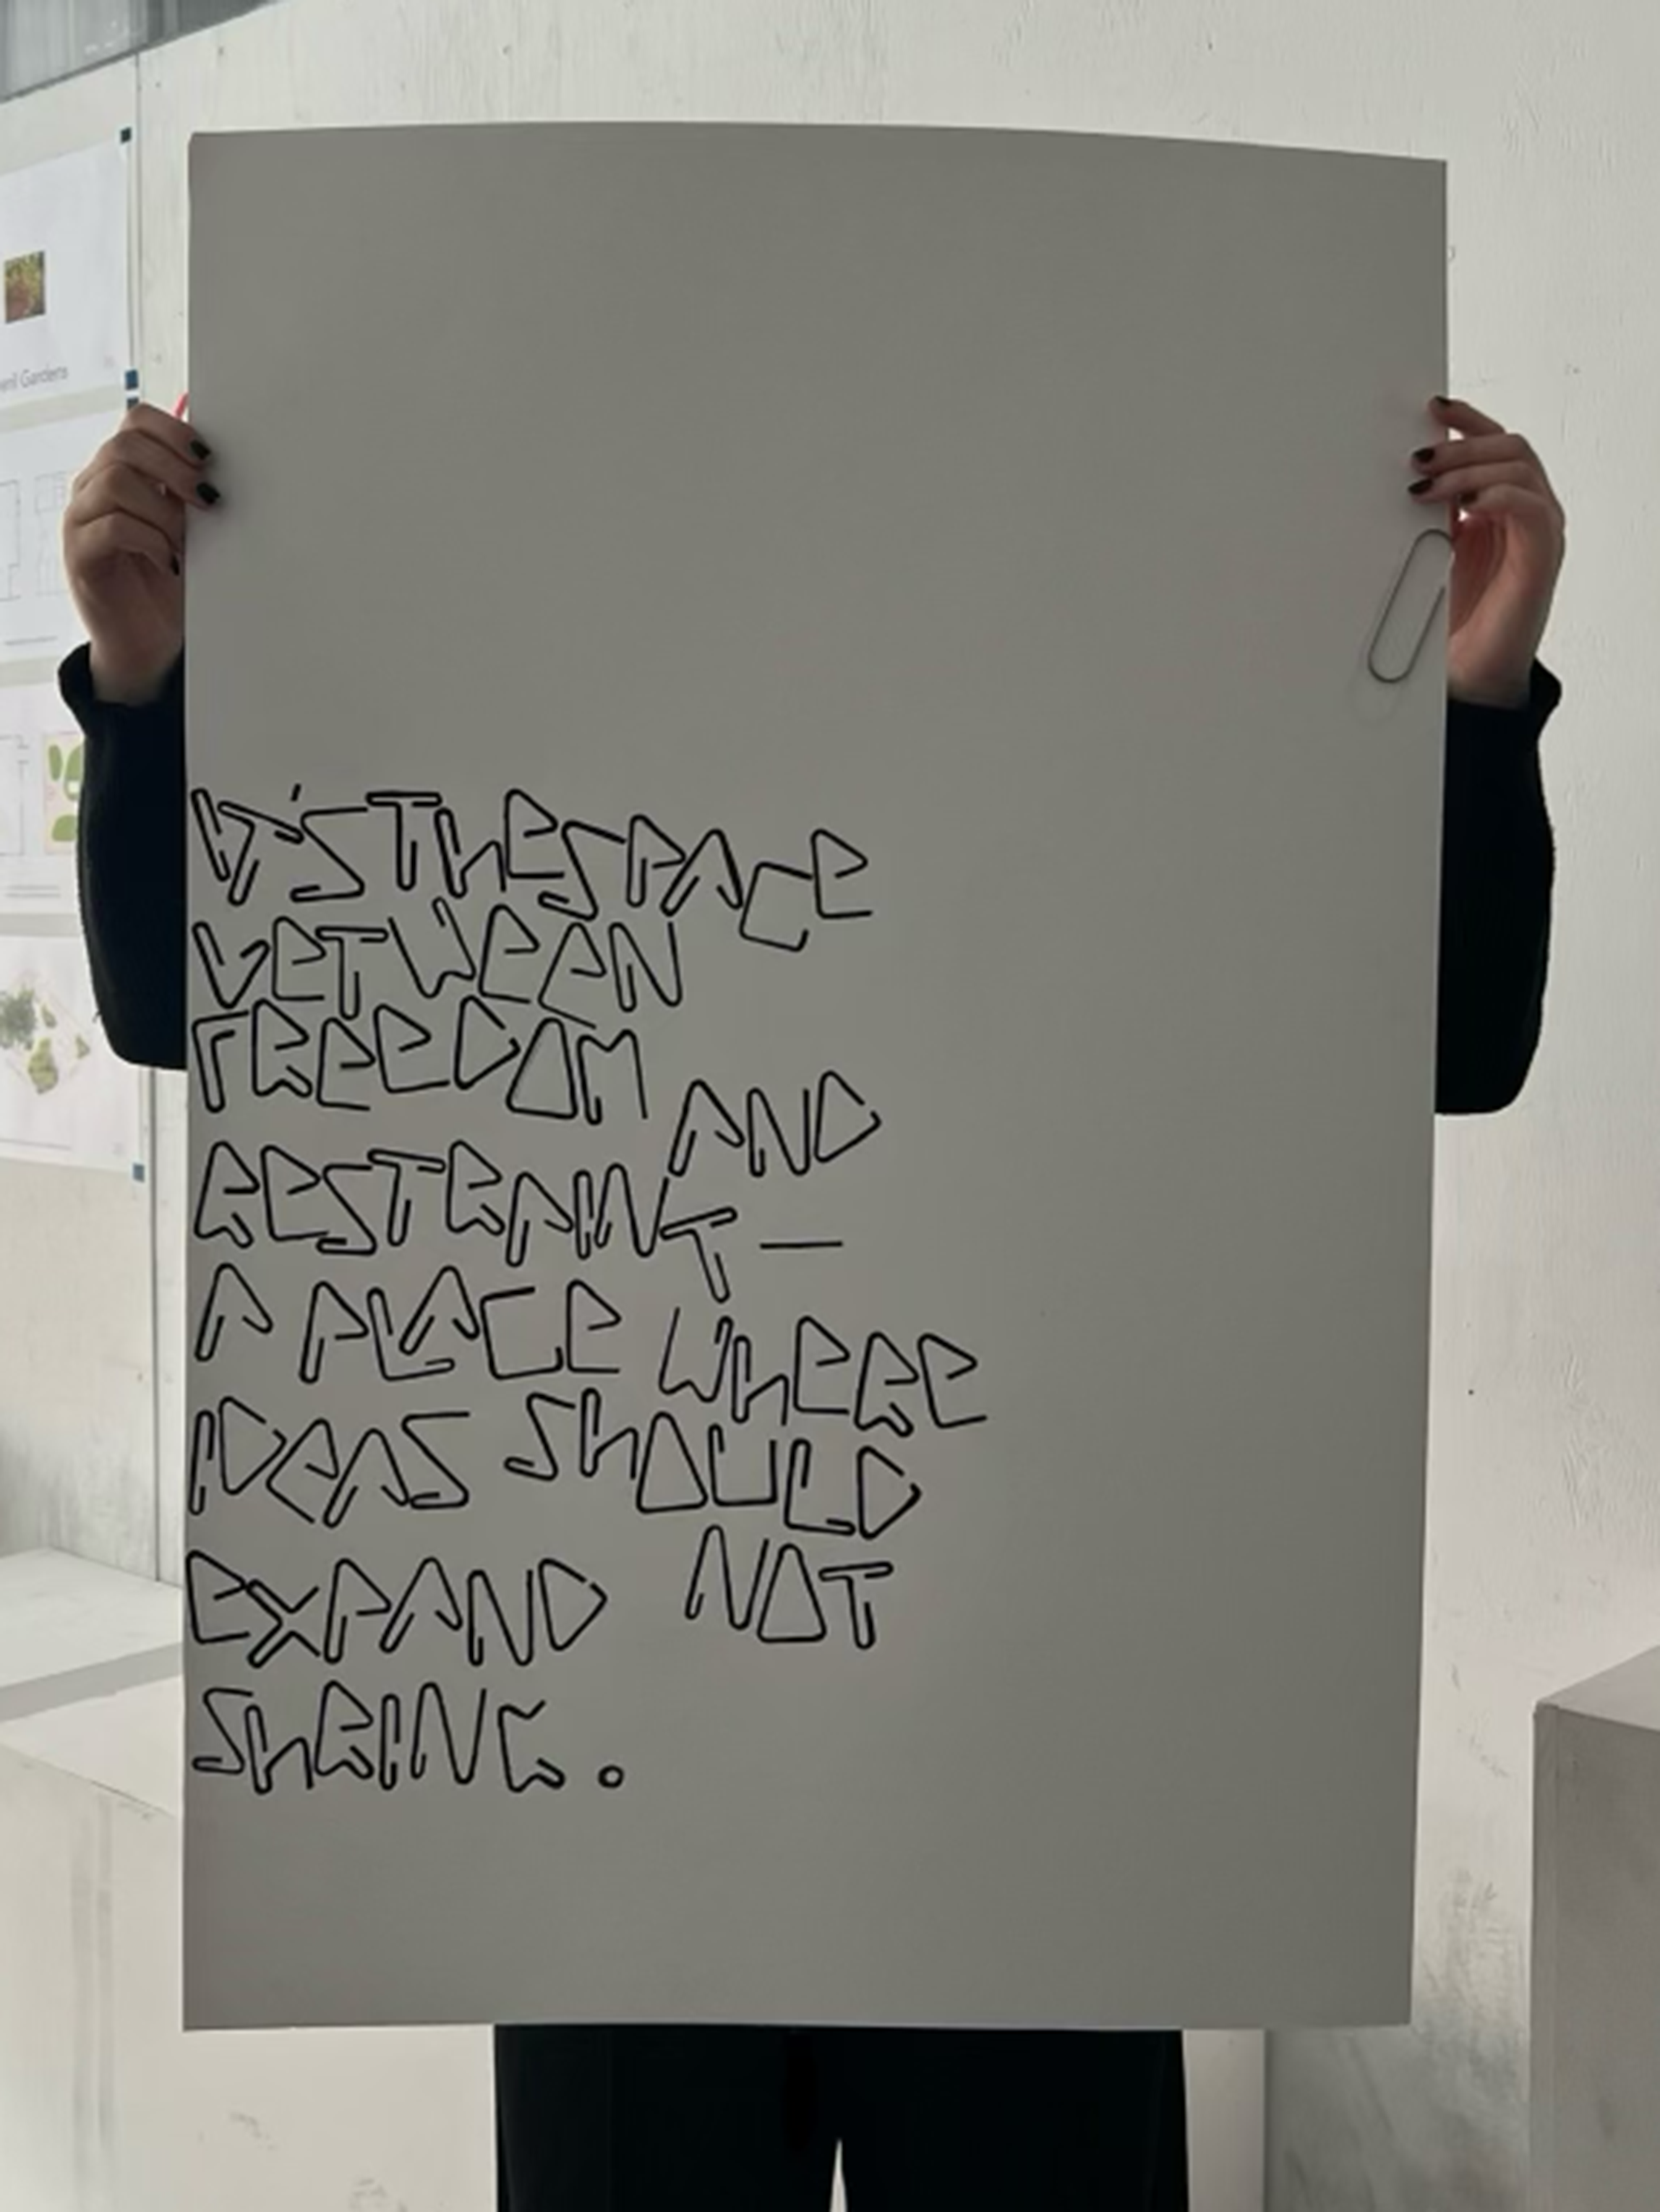 IT'S THE SPACE
beTWEEN
FREEDOM AND
RESTRAINT —
A PLACE WHERE
IDEAS SHOULD
EXPAND NOT
SHRINK.
Gardens